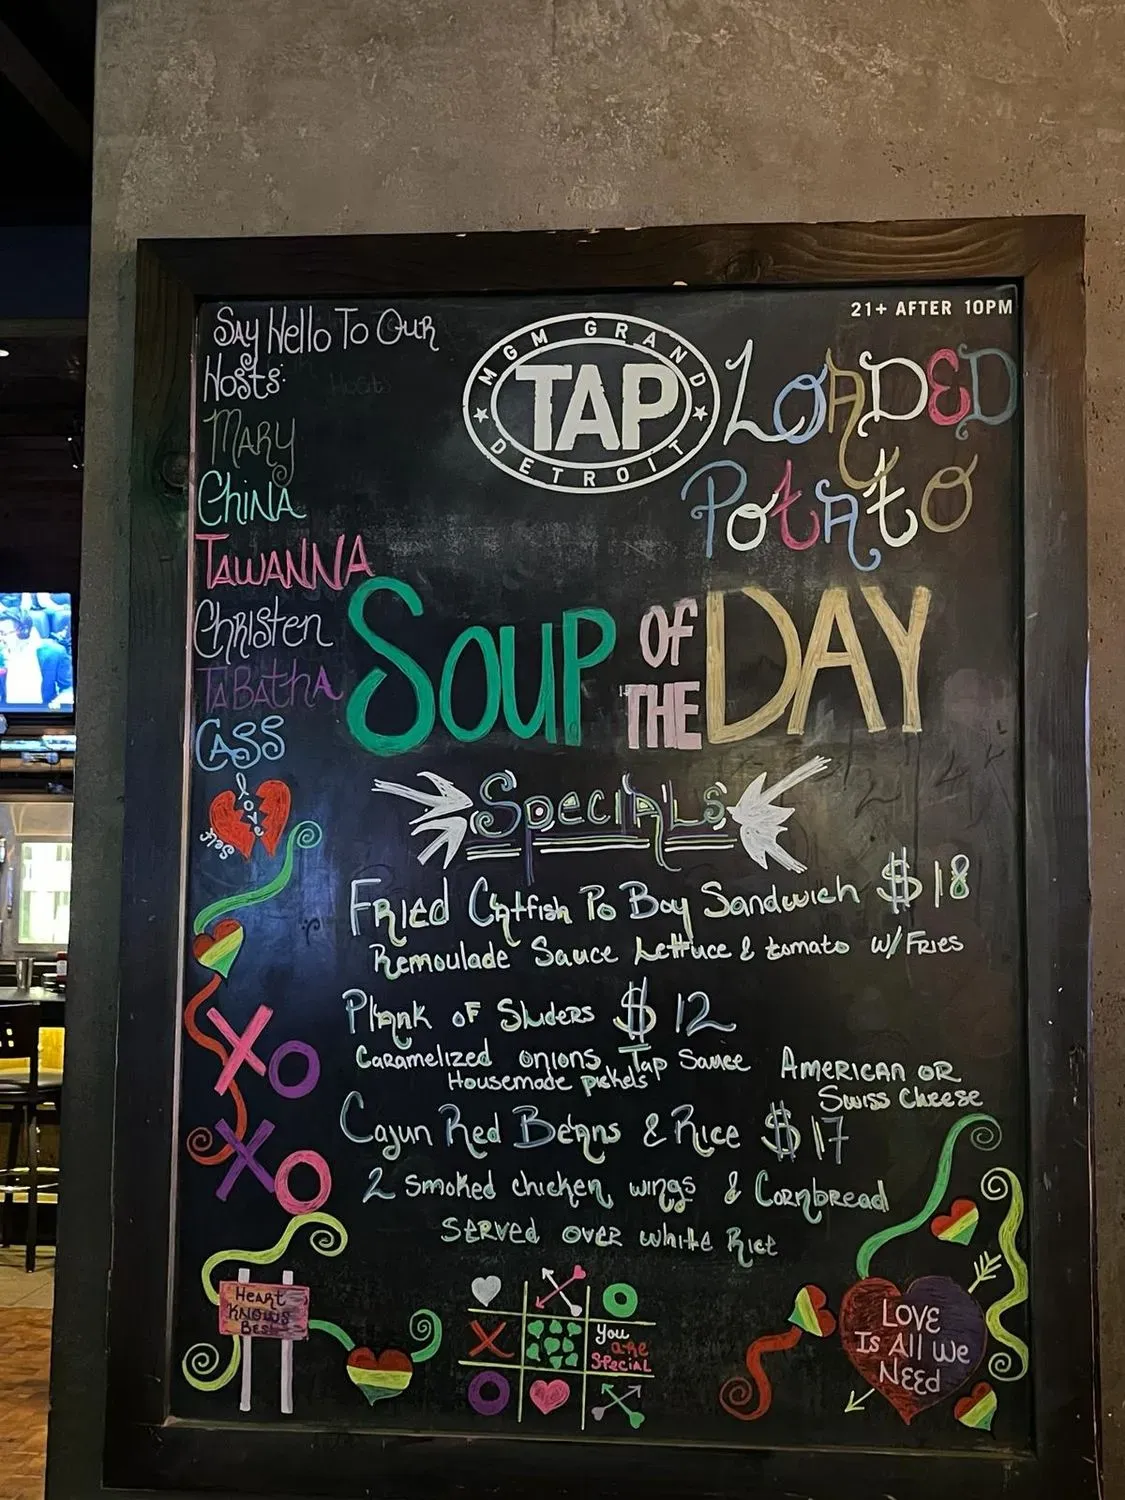 Say Hello To Our
Hosts:
Mary
China
Tawanna
Christen
Tabatha
Cass
Love
Self
21+ AFTER 10PM
MGM GRAND
TAP
DETROIT
Loaded
Potato
Soup of
the Day
Specials
Fried Catfish Po Boy Sandwich $18
Remoulade Sauce Lettuce & tomato w/ Fries
Plank of Sliders $12
Caramelized onions Tap Sauce
Housemade pickels
American or
Swiss Cheese
Cajun Red Beans & Rice $17
2 smoked chicken wings & Cornbread
Served over white Rice
X O
X O
Heart
Knows
Best
X
O
O
You
are
Special
Love
Is All We
Need